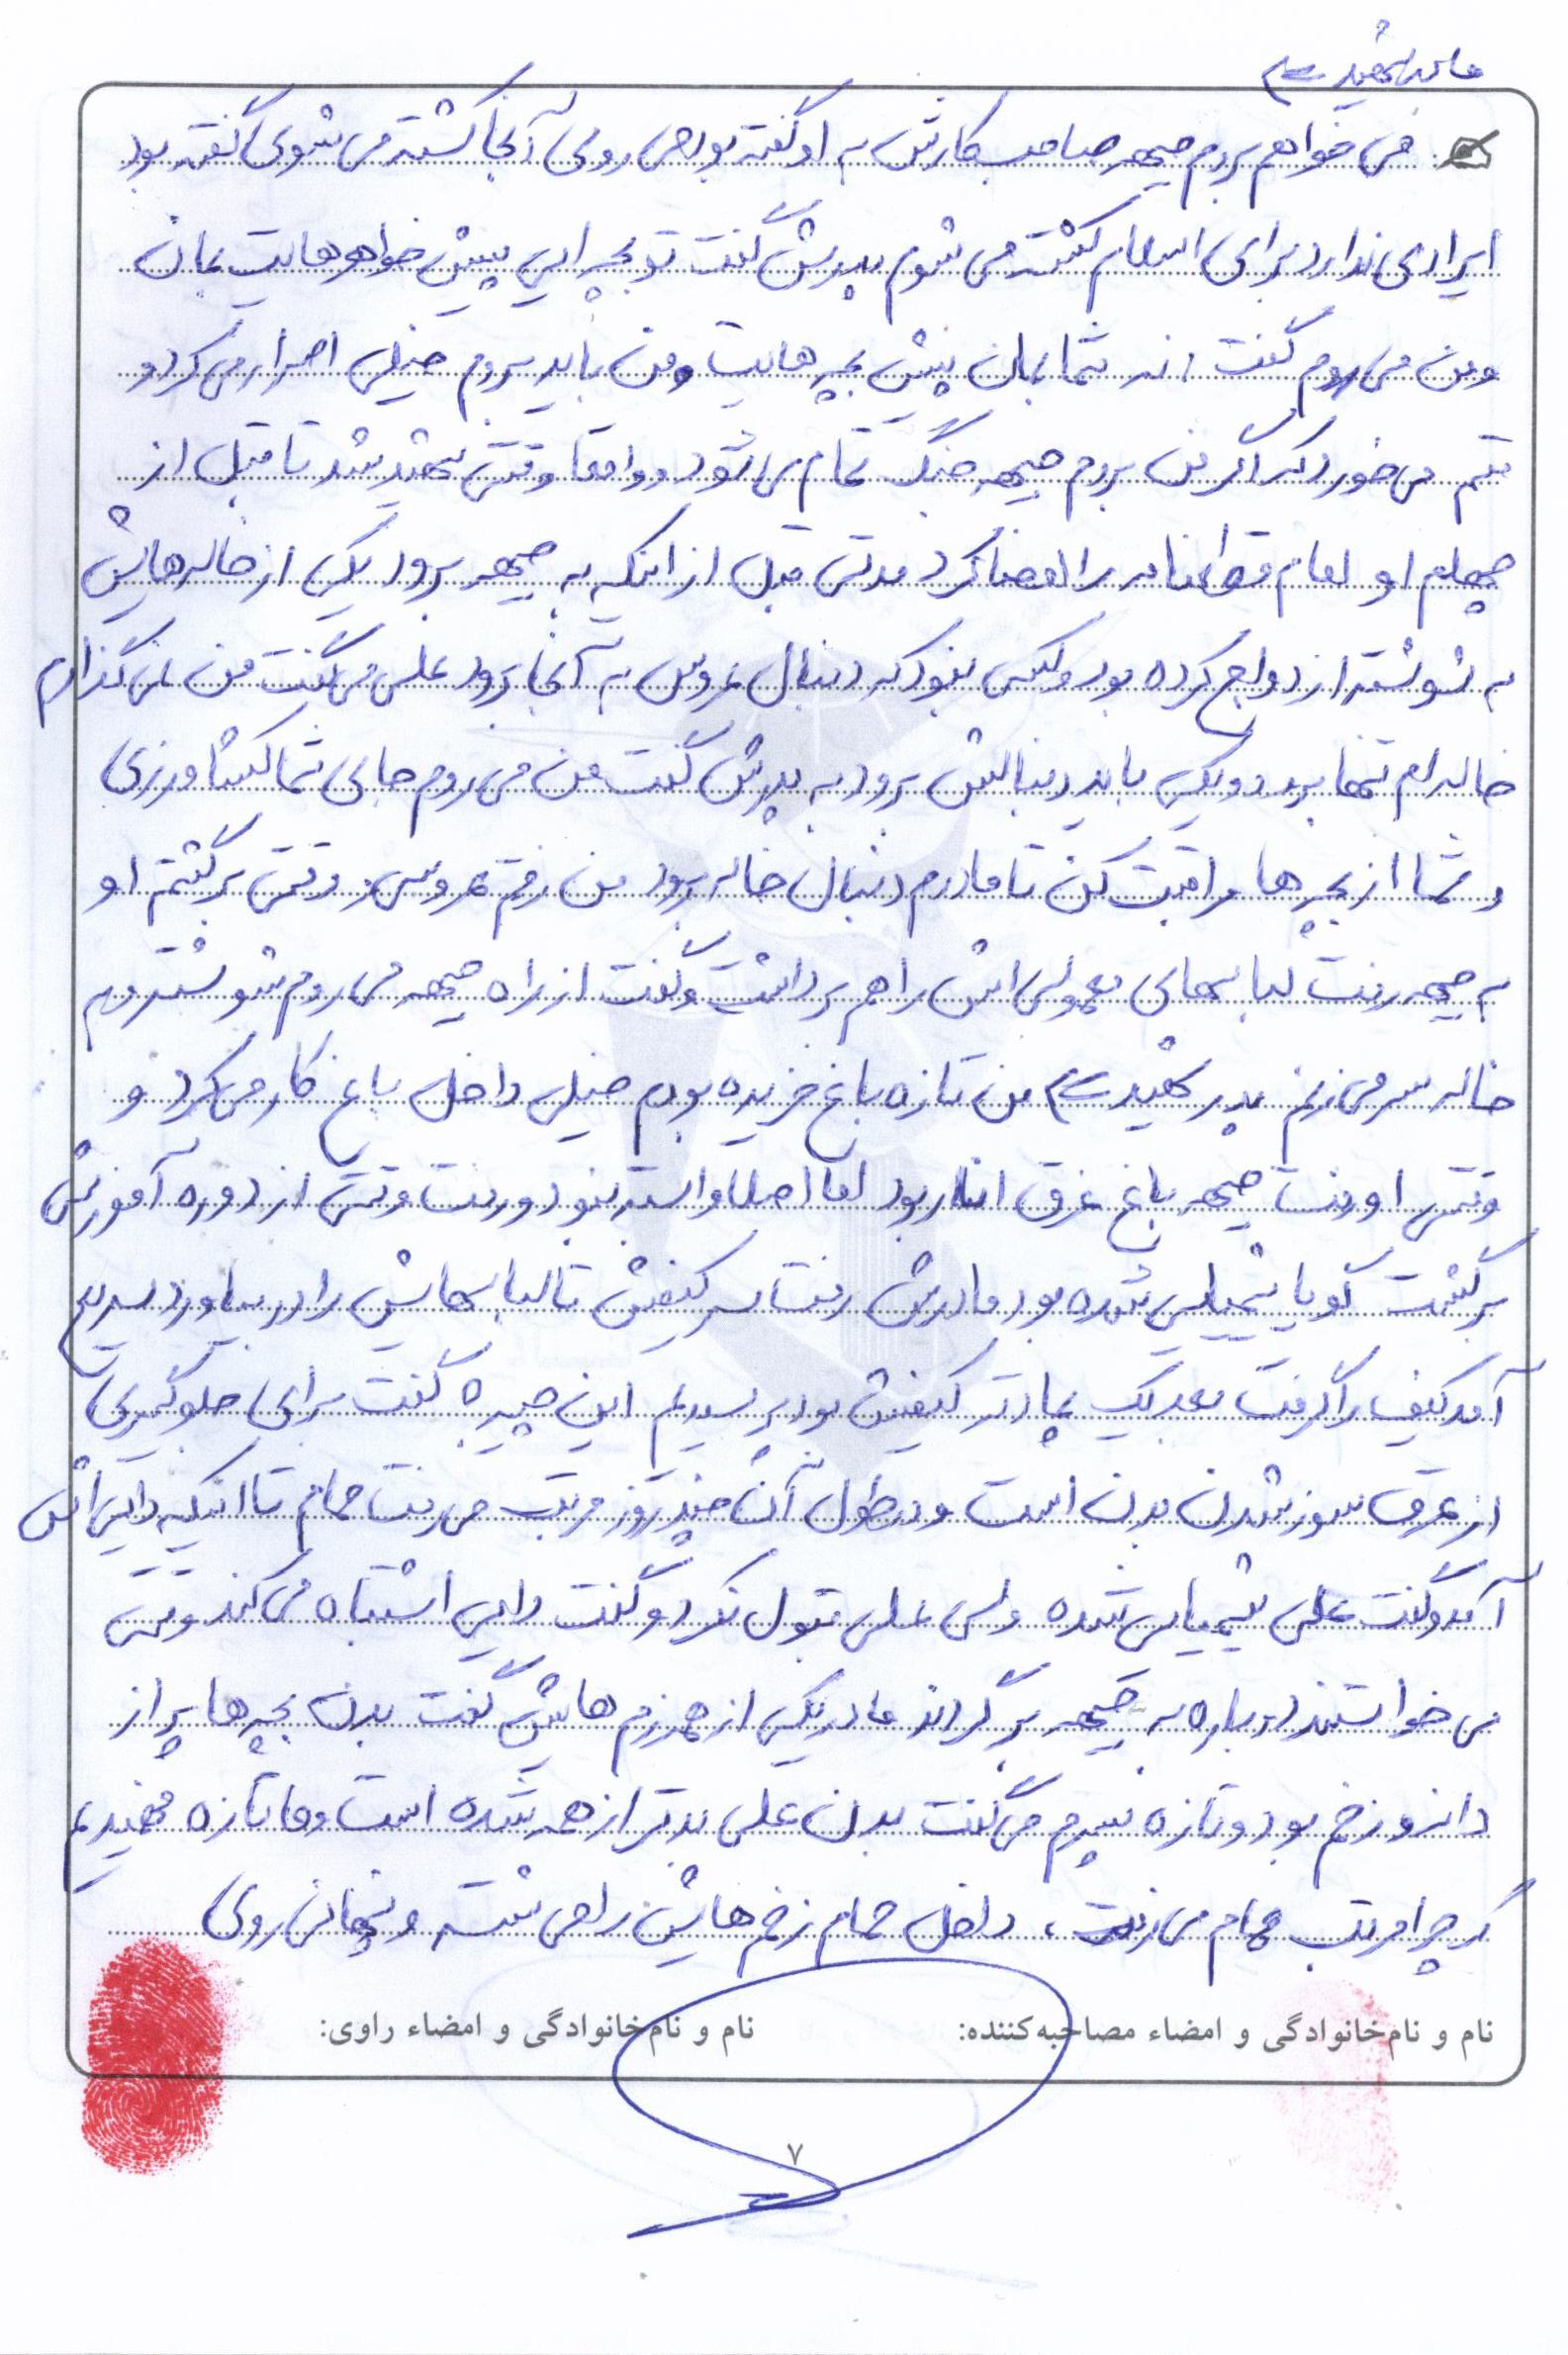 مادر شهید ←
می خواهم بروم جبهه صاحب کارش به او گفته بود می روی آنجا کشته می شوی گفته بود
ایرادی ندارد برای اسلام کشته می شوم پدرش گفت تو بچه ایی پیش خواهرهایت بمان
و من می روم گفت: نه شما بمان پیش بچه هایت و من باید بروم خیلی اصرار می کرد و
قسم می خورد که اگر من بروم جبهه جنگ تمام می شود و واقعا وقتی شهید شد تا قبل از
چهلم او امام قطعنامه را امضا کرد مدتی قبل از اینکه به جبهه برود یکی از خاله هایش
به شوشتر ازدواج کرده بود و کسی نبود که دنبال عروس به آنجا برود علی می گفت من نمی گذارم
خاله ام تنها برود و یکی باید دنبالش برود به پدرش گفت من می روم جای شما کشاورزی
و شما از بچه ها مراقبت کن تا مادرم دنبال خاله برود من رفتم عروسی و وقتی برگشتم او
به جبهه رفت لباسهای معمولی اش را هم برداشت و گفت از راه جبهه می روم شوشتر و به
خاله سر می زنم پدر شهید ← من تازه باغ خریده بودم خیلی داخل باغ کار می کرد و
وقتی او رفت جبهه باغ غرق انار بود اما اصلا وابسته نبود و رفت وقتی از دوره آموزش
برگشت گویا شیمیایی شده بود مادرش رفت سر کیفش تا لباسهایش را در بیاورد سریع
آمد کیف را گرفت بعد یک پماد ته کیفش بود پرسیدیم این چیه؟ گفت برای جلوگیری
از عرق سوز شدن بدن است و در طول آن چند روز مرتب می رفت حمام تا اینکه دایی اش
آمد و گفت علی شیمیایی شده ولی علی قبول نکرد و گفت دایی اشتباه می کند وقتی
می خواستند دوباره به جبهه برگردند مادر یکی از همرزم هایش گفت بدن بچه ها پر از
دانه و زخم بود و تازه پسرم می گفت بدن علی بدتر از همه شده است و ما تازه فهمیدیم
که چرا مرتب حمام می رفت، داخل حمام زخم هایش را می شسته و پنهانی روی
نام و نام‌خانوادگی و امضاء مصاحبه‌کننده: نام و نام‌خانوادگی و امضاء راوی:
۷